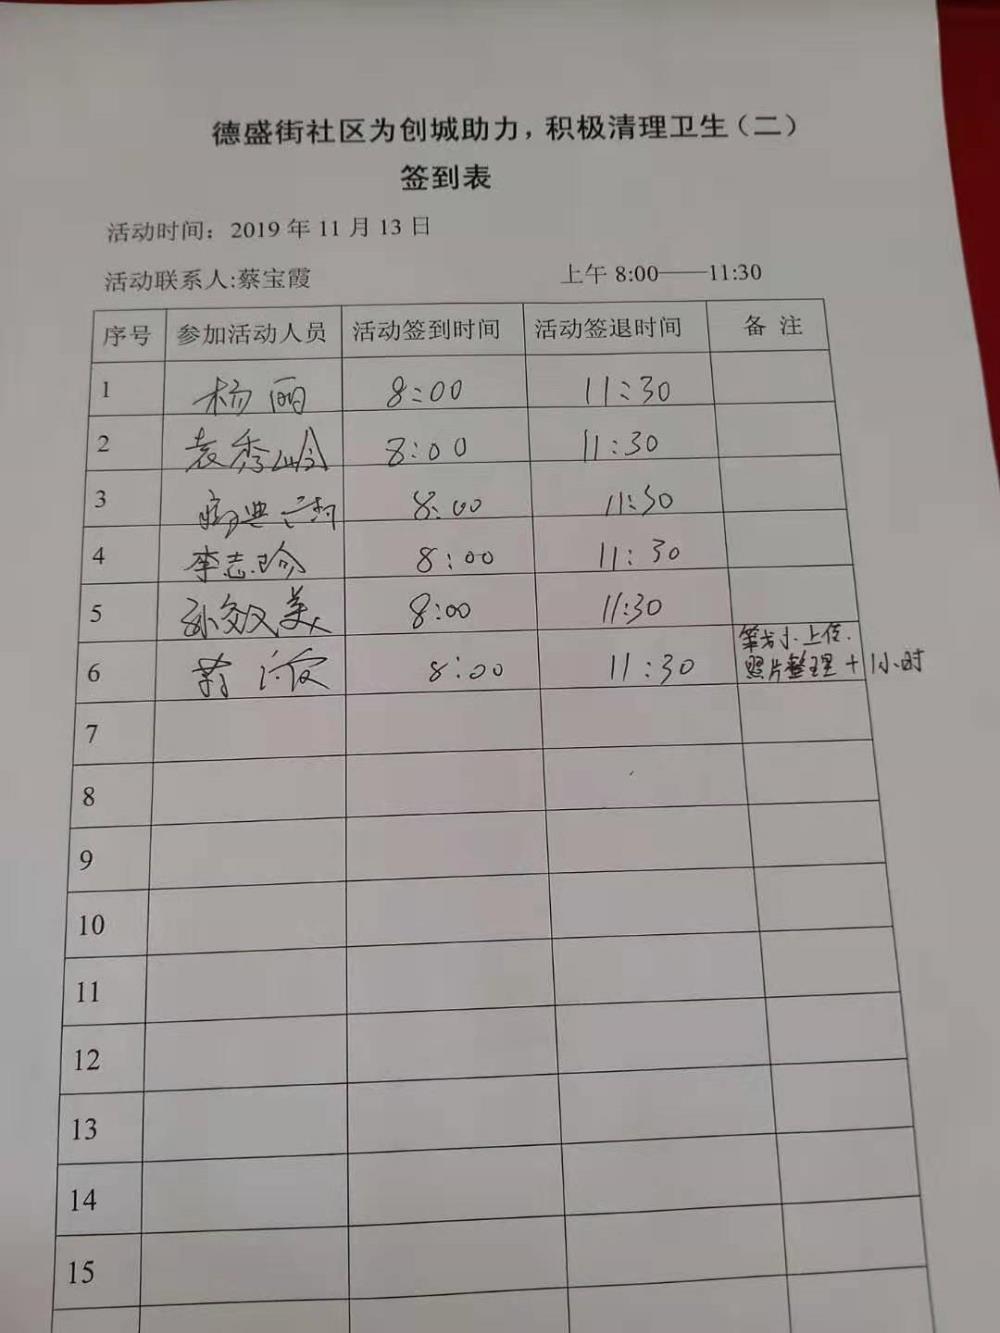 德盛街社区为创城助力，积极清理卫生（二）
签到表
活动时间：2019 年 11 月 13 日
活动联系人:蔡宝霞 上午 8:00——11:30
序号 参加活动人员 活动签到时间 活动签退时间 备 注
1 杨丽 8:00 11:30
2 袁秀岭 8:00 11:30
3 8:00 11:30
4 李志珍 8:00 11:30
5 孙效美 8:00 11:30
6 8:00 11:30 策划、上传、
照片整理 + 1小时
7
8
9
10
11
12
13
14
15